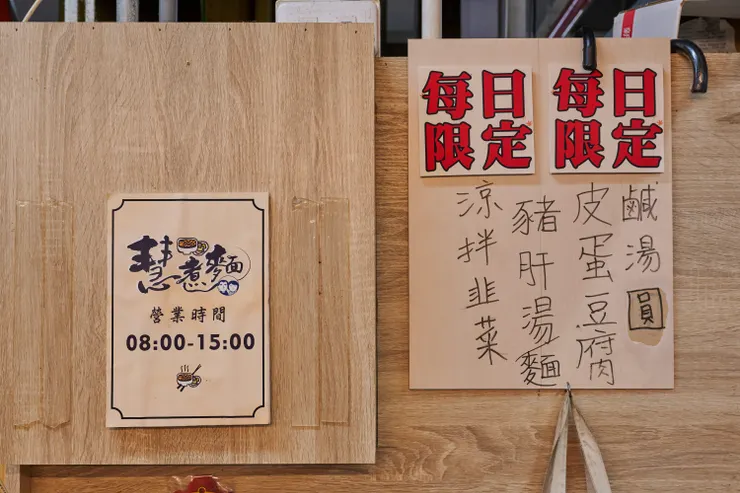 慧煮麵
營業時間
08:00-15:00
每日限定
每日限定
鹹湯圓
皮蛋豆腐
豬肝湯麵
涼拌韭菜